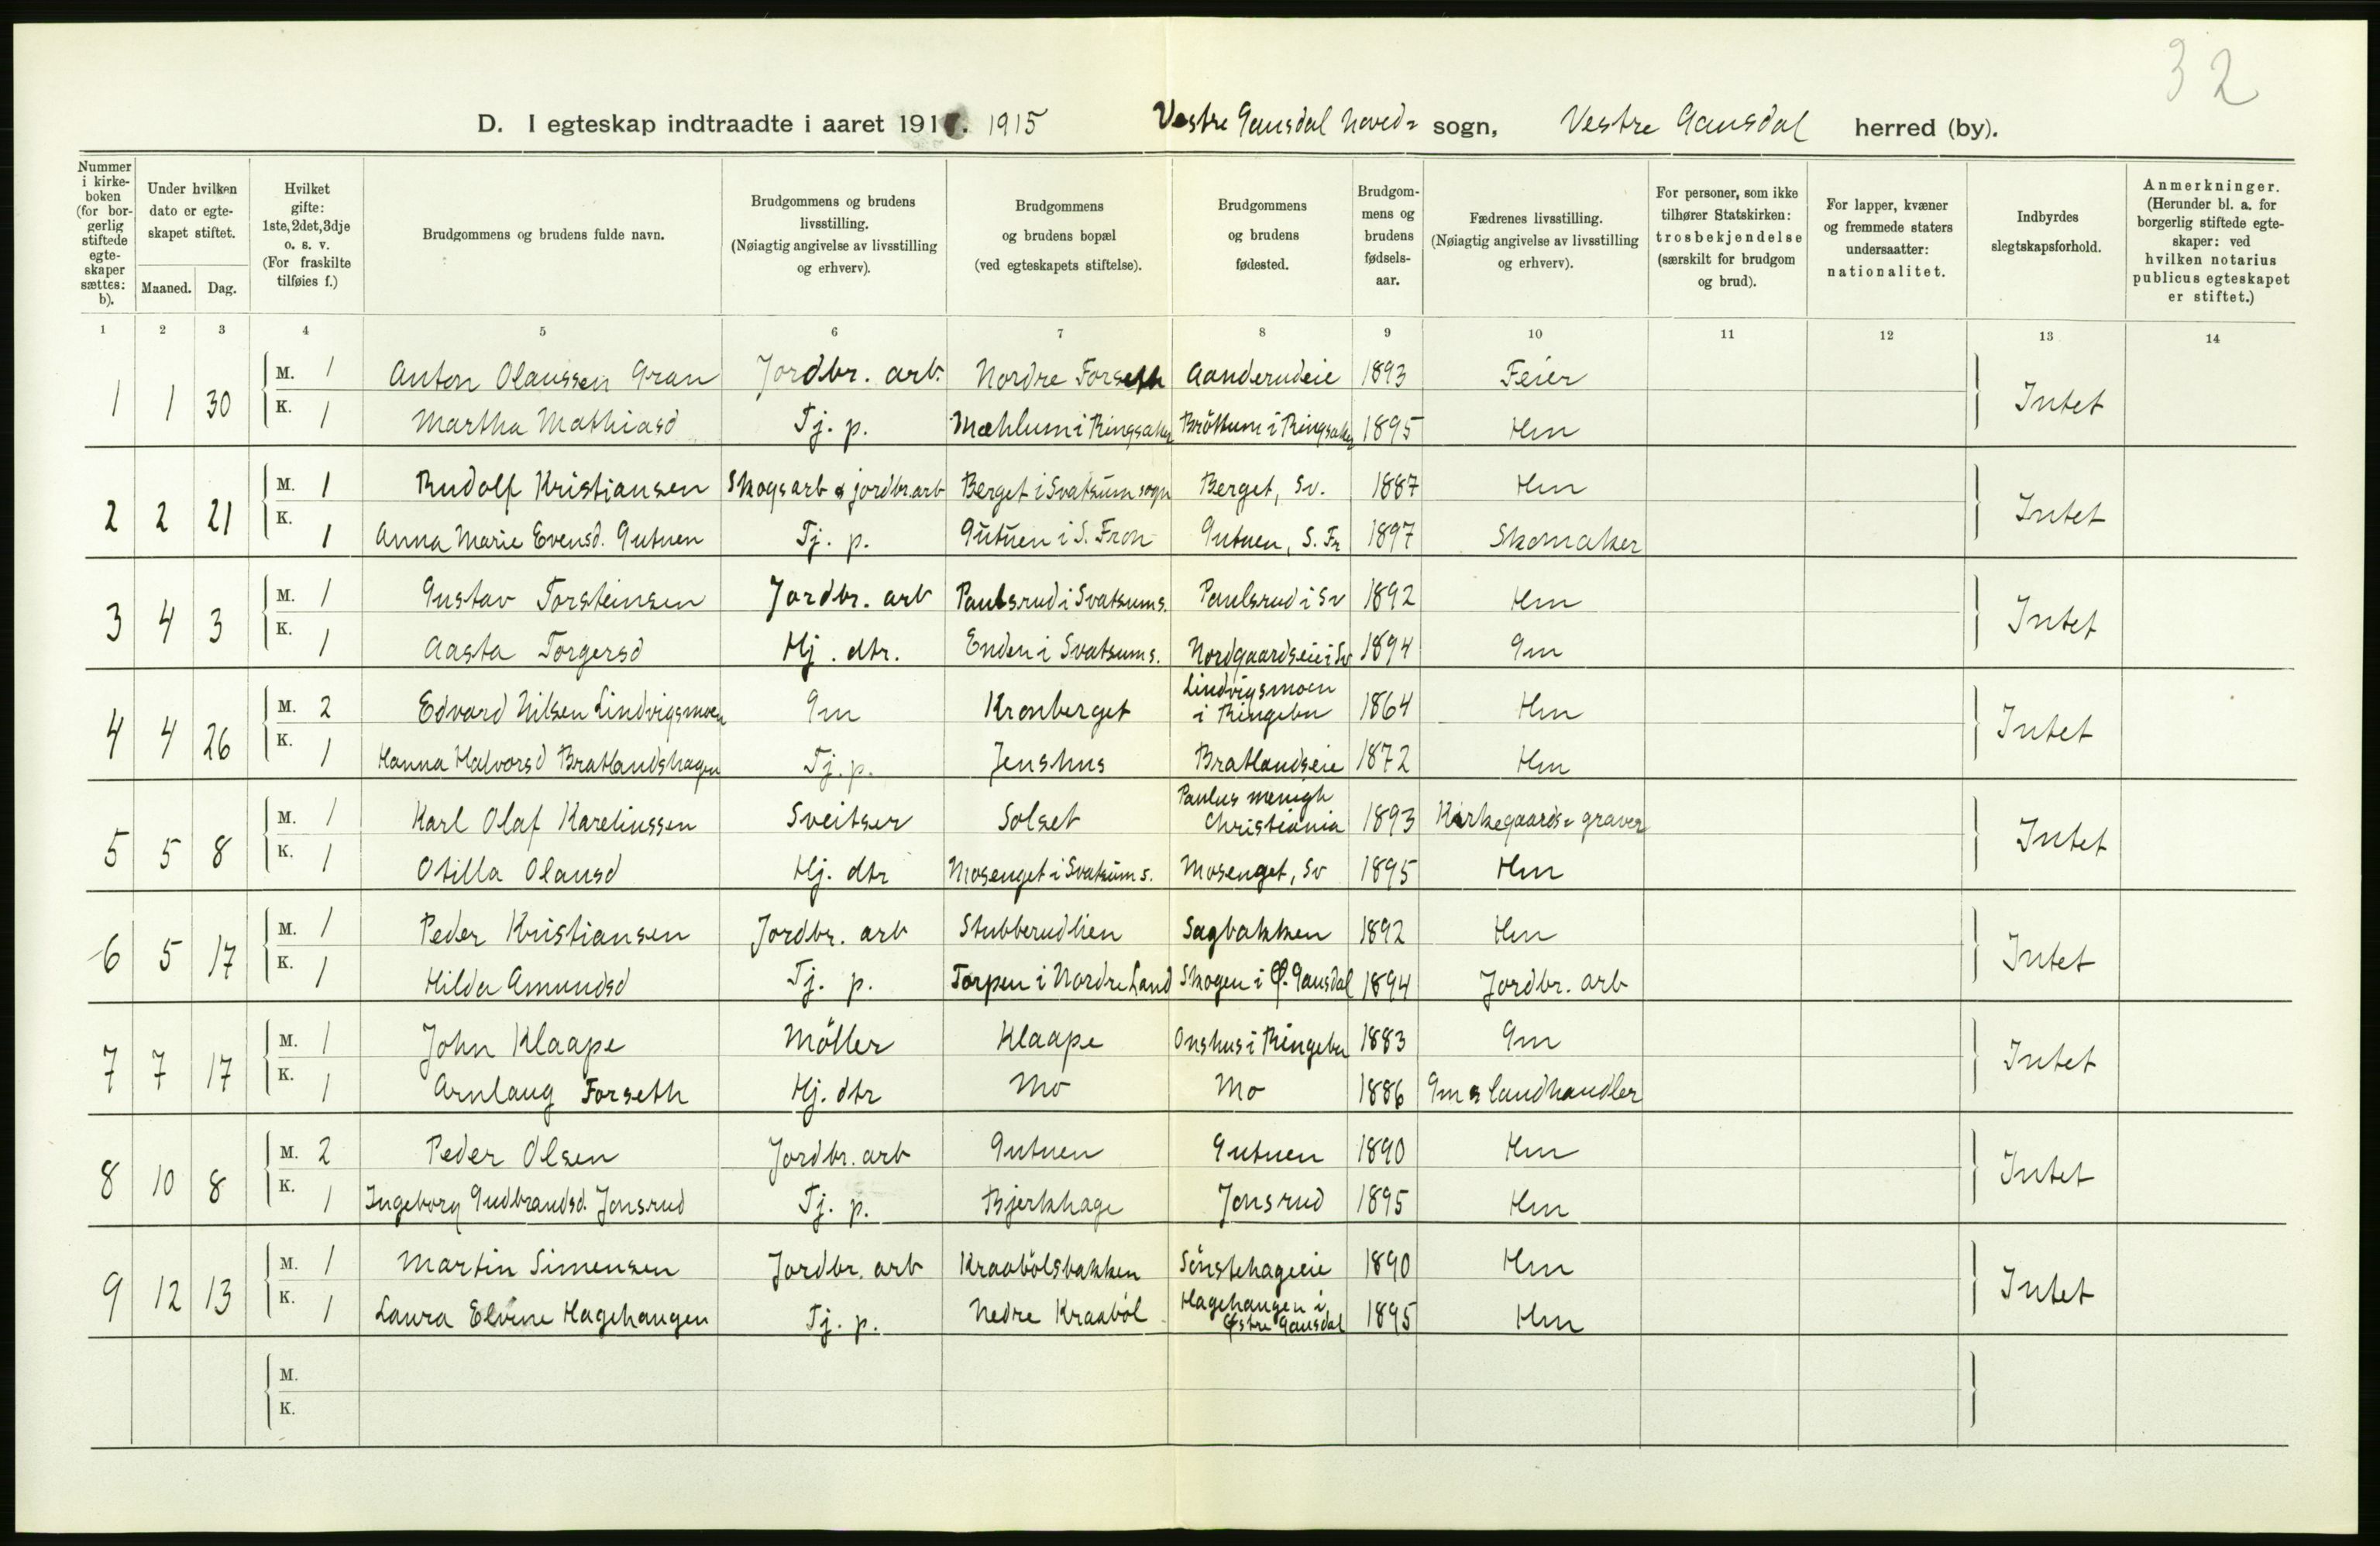 32
D. I egteskap indtraadte i aaret 191 . 1915 Vestre Gausdal hoved= sogn, Vestre Gausdal herred (by).
Nummer i kirke-boken (for bor-gerlig stiftede egte-skaper sættes: b).
Under hvilken dato er egte-skapet stiftet.
Maaned. Dag.
Hvilket gifte: 1ste, 2det, 3dje o. s. v. (For fraskilte tilføies f.)
Brudgommens og brudens fulde navn.
Brudgommens og brudens livsstilling. (Nøiagtig angivelse av livsstilling og erhverv).
Brudgommens og brudens bopæl (ved egteskapets stiftelse).
Brudgommens og brudens fødested.
Brudgom-mens og brudens fødsels-aar.
Fædrenes livsstilling. (Nøiagtig angivelse av livsstilling og erhverv).
For personer, som ikke tilhører Statskirken: trosbekjendelse (særskilt for brudgom og brud).
For lapper, kvæner og fremmede staters undersaatter: nationalitet.
Indbyrdes slegtskapsforhold.
Anmerkninger. (Herunder bl. a. for borgerlig stiftede egte-skaper: ved hvilken notarius publicus egteskapet er stiftet.)
1 2 3 4 5 6 7 8 9 10 11 12 13 14
1 1 30 M. 1 Anton Olaussen Gran Jordbr. arb. Nordre Forseth Aanderudeie 1893 Feier Intet
K. 1 Martha Mathiasd Tj. p. Mæhlum i Ringsaker Bröttum i Ringsaker 1895 Hm
2 2 21 M. 1 Rudolf Kristiansen Skogsarb & jordbr.arb Berget i Svatsum sogn Berget, Sv. 1887 Hm Intet
K. 1 Anna Marie Evensd. Gutuen Tj. p. Gutuen i S. Fron Gutuen, S. Fr 1897 Skomaker
3 4 3 M. 1 Gustav Torsteinsen Jordbr. arb Paulsrud i Svatsum s. Paulsrud i Sv 1892 Hm Intet
K. 1 Aasta Torgersd Hj. dtr. Enden i Svatsum s. Nordgaardseie i Sv 1894 Gm
4 4 26 M. 2 Edvard Nilsen Lindvigsmoen Gm Kronberget Lindvigsmoen i Ringebu 1864 Hm Intet
K. 1 Hanna Halvorsd Bratlandshagen Tj. p. Jenshus Bratlandseie 1872 Hm
5 5 8 M. 1 Karl Olaf Kareliussen Sveitser Solset Paulus menigh Christiania 1893 Kirkegaards= graver Intet
K. 1 Otilla Olausd Hj. dtr Mosenget i Svatsum s. Mosenget, Sv 1895 Hm
6 5 17 M. 1 Peder Kristiansen Jordbr. arb Stubberudlien Sagbakken 1892 Hm Intet
K. 1 Hilda Amundsd Tj. p. Torpen i Nordre Land Skogen i Ø. Gausdal 1894 Jordbr. arb
7 7 17 M. 1 John Klaape Möller Klaape Onshus i Ringebu 1883 Gm Intet
K. 1 Arnlaug Forseth Hj. dtr Mo Mo 1886 Gm & landhandler
8 10 8 M. 2 Peder Olsen Jordbr. arb Gutuen Gutuen 1890 Hm Intet
K. 1 Ingeborg Gudbrandsd. Jonsrud Tj. p. Bjerkhage Jonsrud 1895 Hm
9 12 13 M. 1 Martin Simensen Jordbr. arb Kraabölsbakken Sönstehageeie 1890 Hm Intet
K. 1 Laura Elvine Hagehaugen Tj. p. Nedre Kraaböl Hagehaugen i Østre Gausdal 1895 Hm
M.
K.